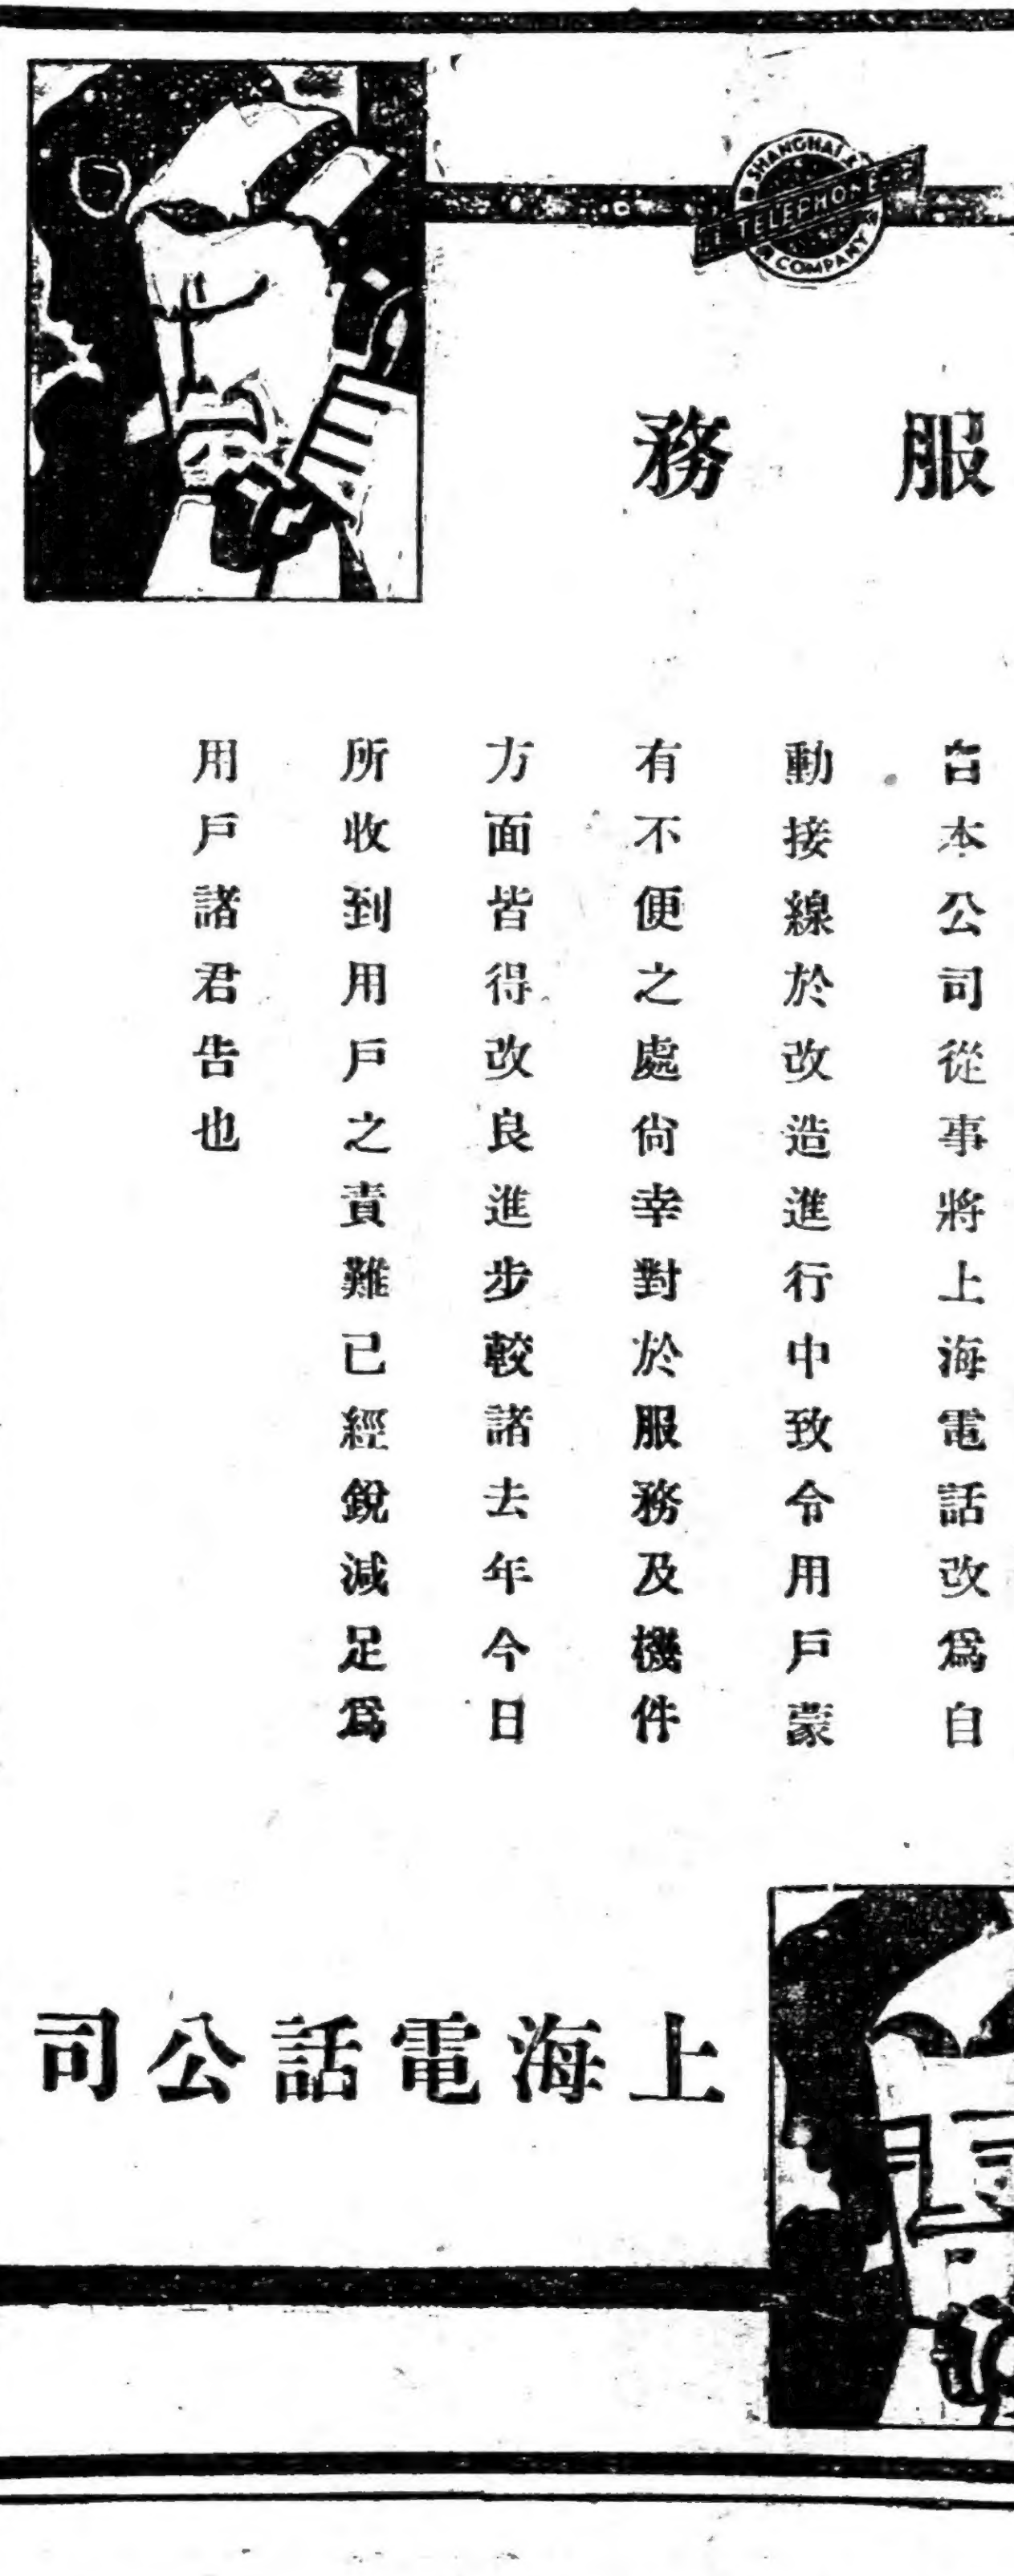 SHANGHAI
TELEPHONE
COMPANY
服務
自本公司從事將上海電話改爲自
動接線於改造進行中致令用戶蒙
有不便之處尙幸對於服務及機件
方面皆得改良進步較諸去年今日
所收到用戶之責難已經銳減足爲
用戶諸君告也
上海電話公司